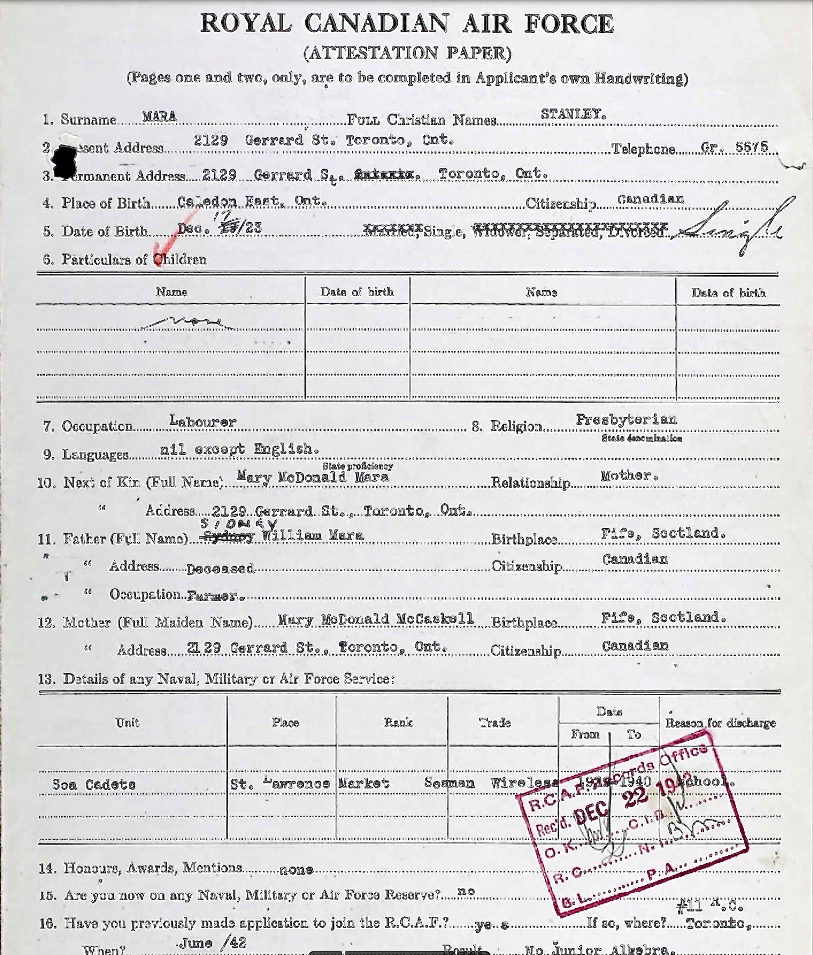 ROYAL CANADIAN AIR FORCE
(ATTESTATION PAPER)
(Pages one and two, only, are to be completed in Applicant's own Handwriting)
1. Surname MARA Full Christian Names STANLEY.
2. esent Address 2129 Gerrard St. Toronto, Ont. Telephone Gr. 5575
3. ermanent Address 2129 Gerrard St. Toronto, Ont.
4. Place of Birth Caledon East, Ont. Citizenship Canadian
5. Date of Birth Dec. 17/23 Married, Single, Widower, Separated, Divorced Single
6. Particulars of Children
Name Date of birth Name Date of birth
none
7. Occupation Labourer 8. Religion Presbyterian
State denomination
9. Languages nil except English.
State proficiency
10. Next of Kin (Full Name) Mary McDonald Mara Relationship Mother.
" Address 2129 Gerrard St., Toronto, Ont.
SIDNEY
11. Father (Full Name) Sydney William Mara Birthplace Fife, Scotland.
" Address Deceased Citizenship Canadian
" Occupation Farmer.
12. Mother (Full Maiden Name) Mary McDonald McCaskell Birthplace Fife, Scotland.
" Address 2129 Gerrard St., Toronto, Ont. Citizenship Canadian
13. Details of any Naval, Military or Air Force Service:
Unit Place Rank Trade Date Reason for discharge
From To
Sea Cadets St. Lawrence Market Seaman Wireless 1940 School.
R.C.A.F. Records Office
Rec'd. DEC 22 1942
O.K. C.I.D.
R.C. N.
B.L. P.A.
14. Honours, Awards, Mentions none
15. Are you now on any Naval, Military or Air Force Reserve? no
#11 R.C.
16. Have you previously made application to join the R.C.A.F.? yes If so, where? Toronto,
When? June /42 Result No Junior Algebra.